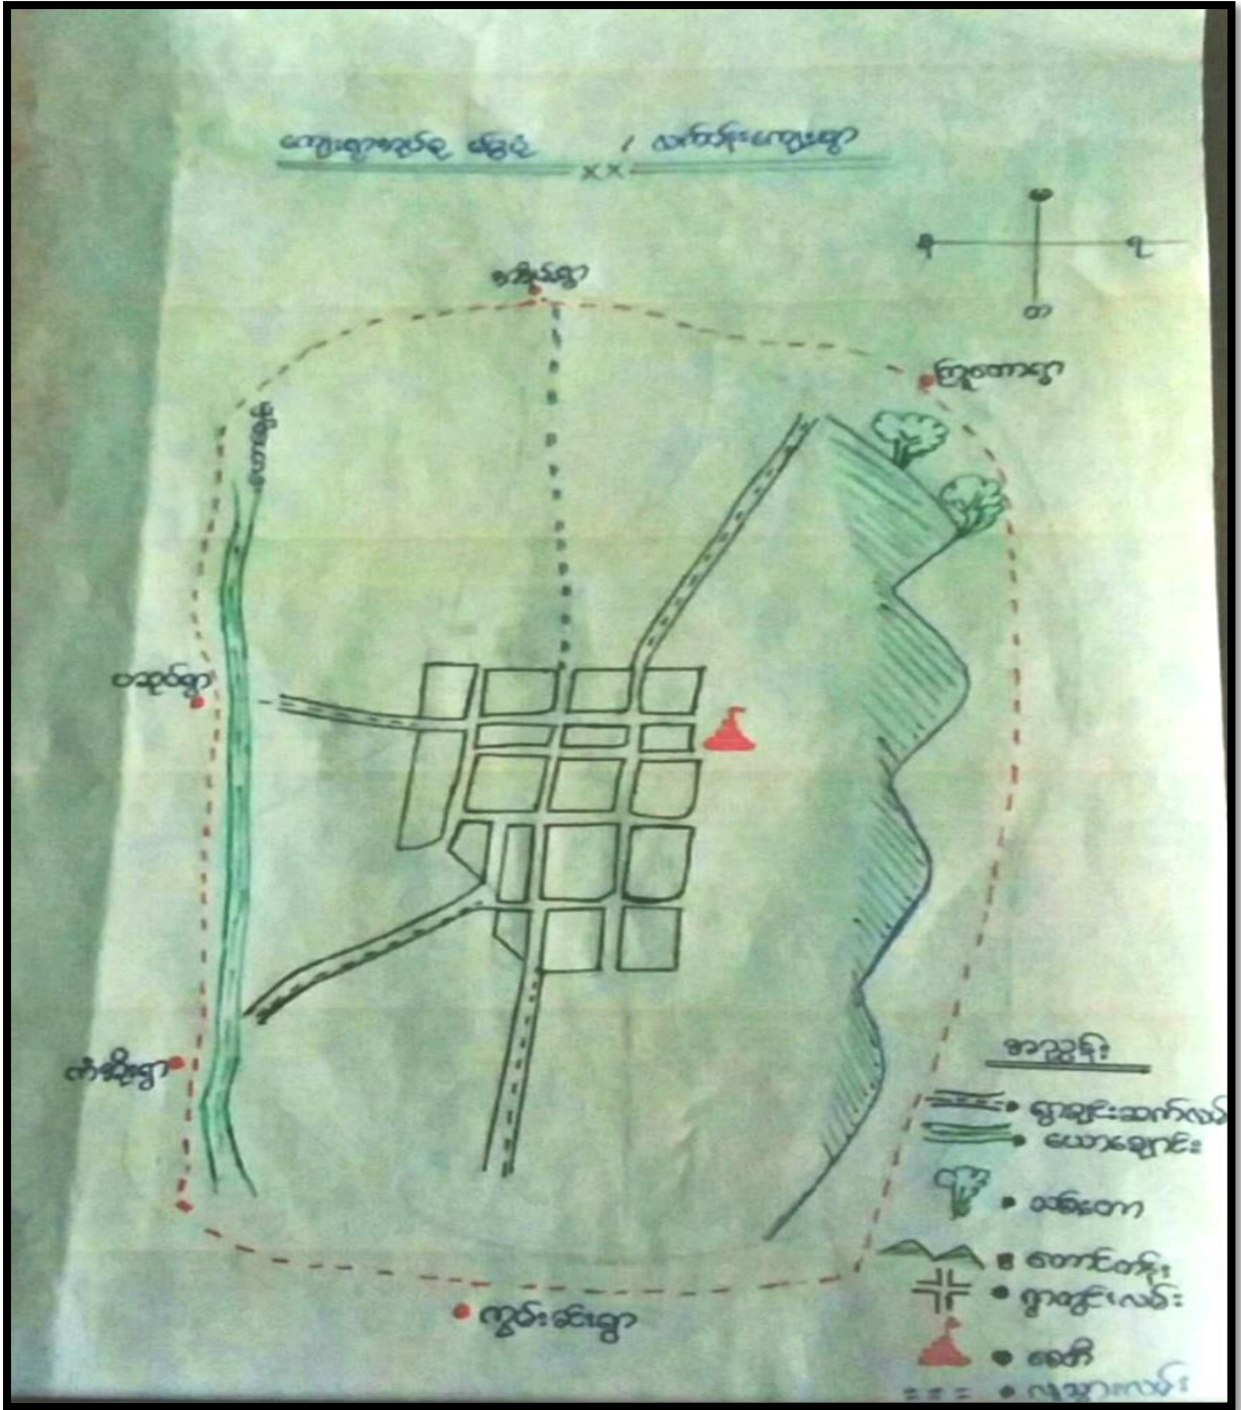 ကျေးရွာအုပ်စု မြေပုံ / လက်ပန်းကျေးရွာ
××
မ
န
ရ
တ
ကြူတောရွာ
ယောချောင်း
ပဆုပ်ရွာ
ကံအိုးရွာ
ကွမ်းခင်းရွာ
အညွှန်း
ရွာချင်းဆက်လမ်း
ယောချောင်း
သစ်တော
တောင်တန်း
ရွာတွင်းလမ်း
စေတီ
လူသွားလမ်း